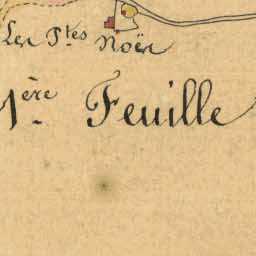 Les Ptes Noës
1ère Feuille